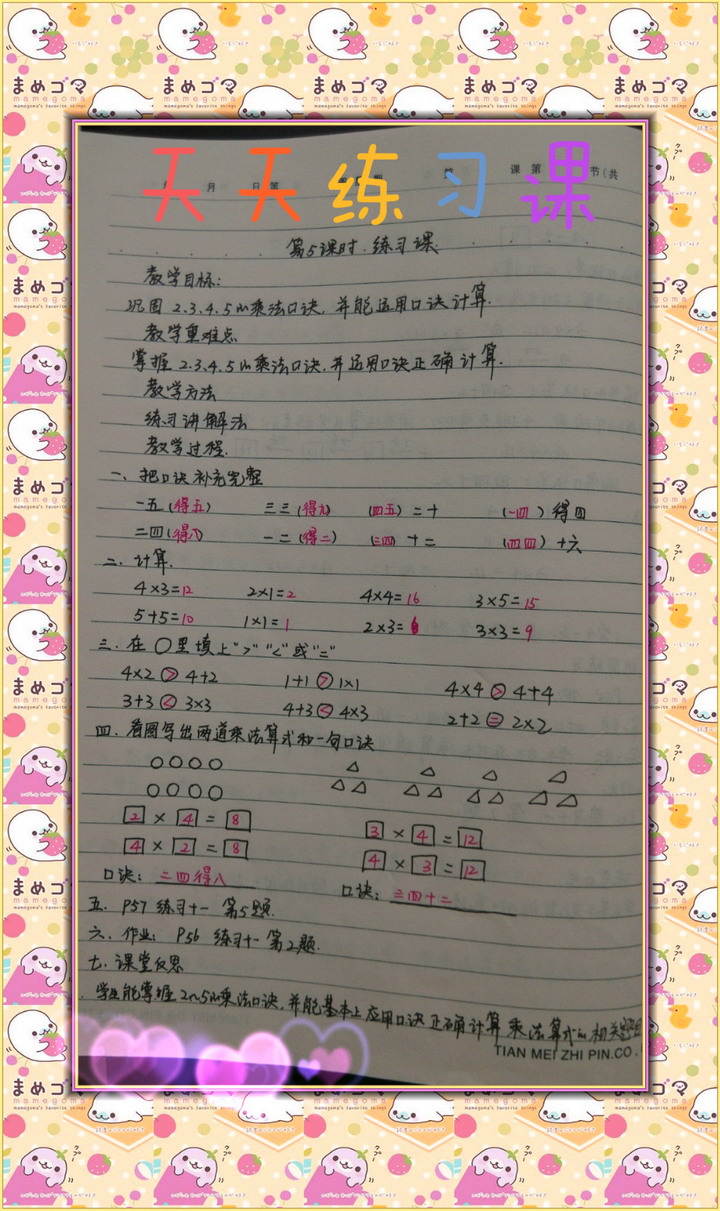 天天练习课
月 日 第 课 第 节(共
第5课时 练习课
教学目标:
巩固2.3.4.5的乘法口诀,并能运用口诀计算.
教学重难点
掌握2.3.4.5的乘法口诀,并运用口诀正确计算.
教学方法
练习讲解法
教学过程.
一、把口诀补充完整
一五(得五) 三三(得九) (四五)二十 (一四)得四
二四(得八) 一二(得二) (三四)十二 (四四)十六
二、计算.
4×3=12 2×1=2 4×4=16 3×5=15
5+5=10 1×1=1 2×3=6 3×3=9
三.在○里填上">""<"或"="
4×2>4+2 1+1>1×1 4×4>4+4
3+3<3×3 4+3<4×3 2+2=2×2
四.看图写出两道乘法算式和一句口诀
2×4=8 3×4=12
4×2=8 4×3=12
口诀:二四得八 口诀:三四十二
五.P57 练习十一 第5题.
六.作业:P56 练习十一 第2题.
七.课堂反思
学生能掌握2~5的乘法口诀,并能基本上应用口诀正确计算乘法算式的相关题目
TIAN MEI ZHI PIN.CO.
まめゴマ
mamegoma